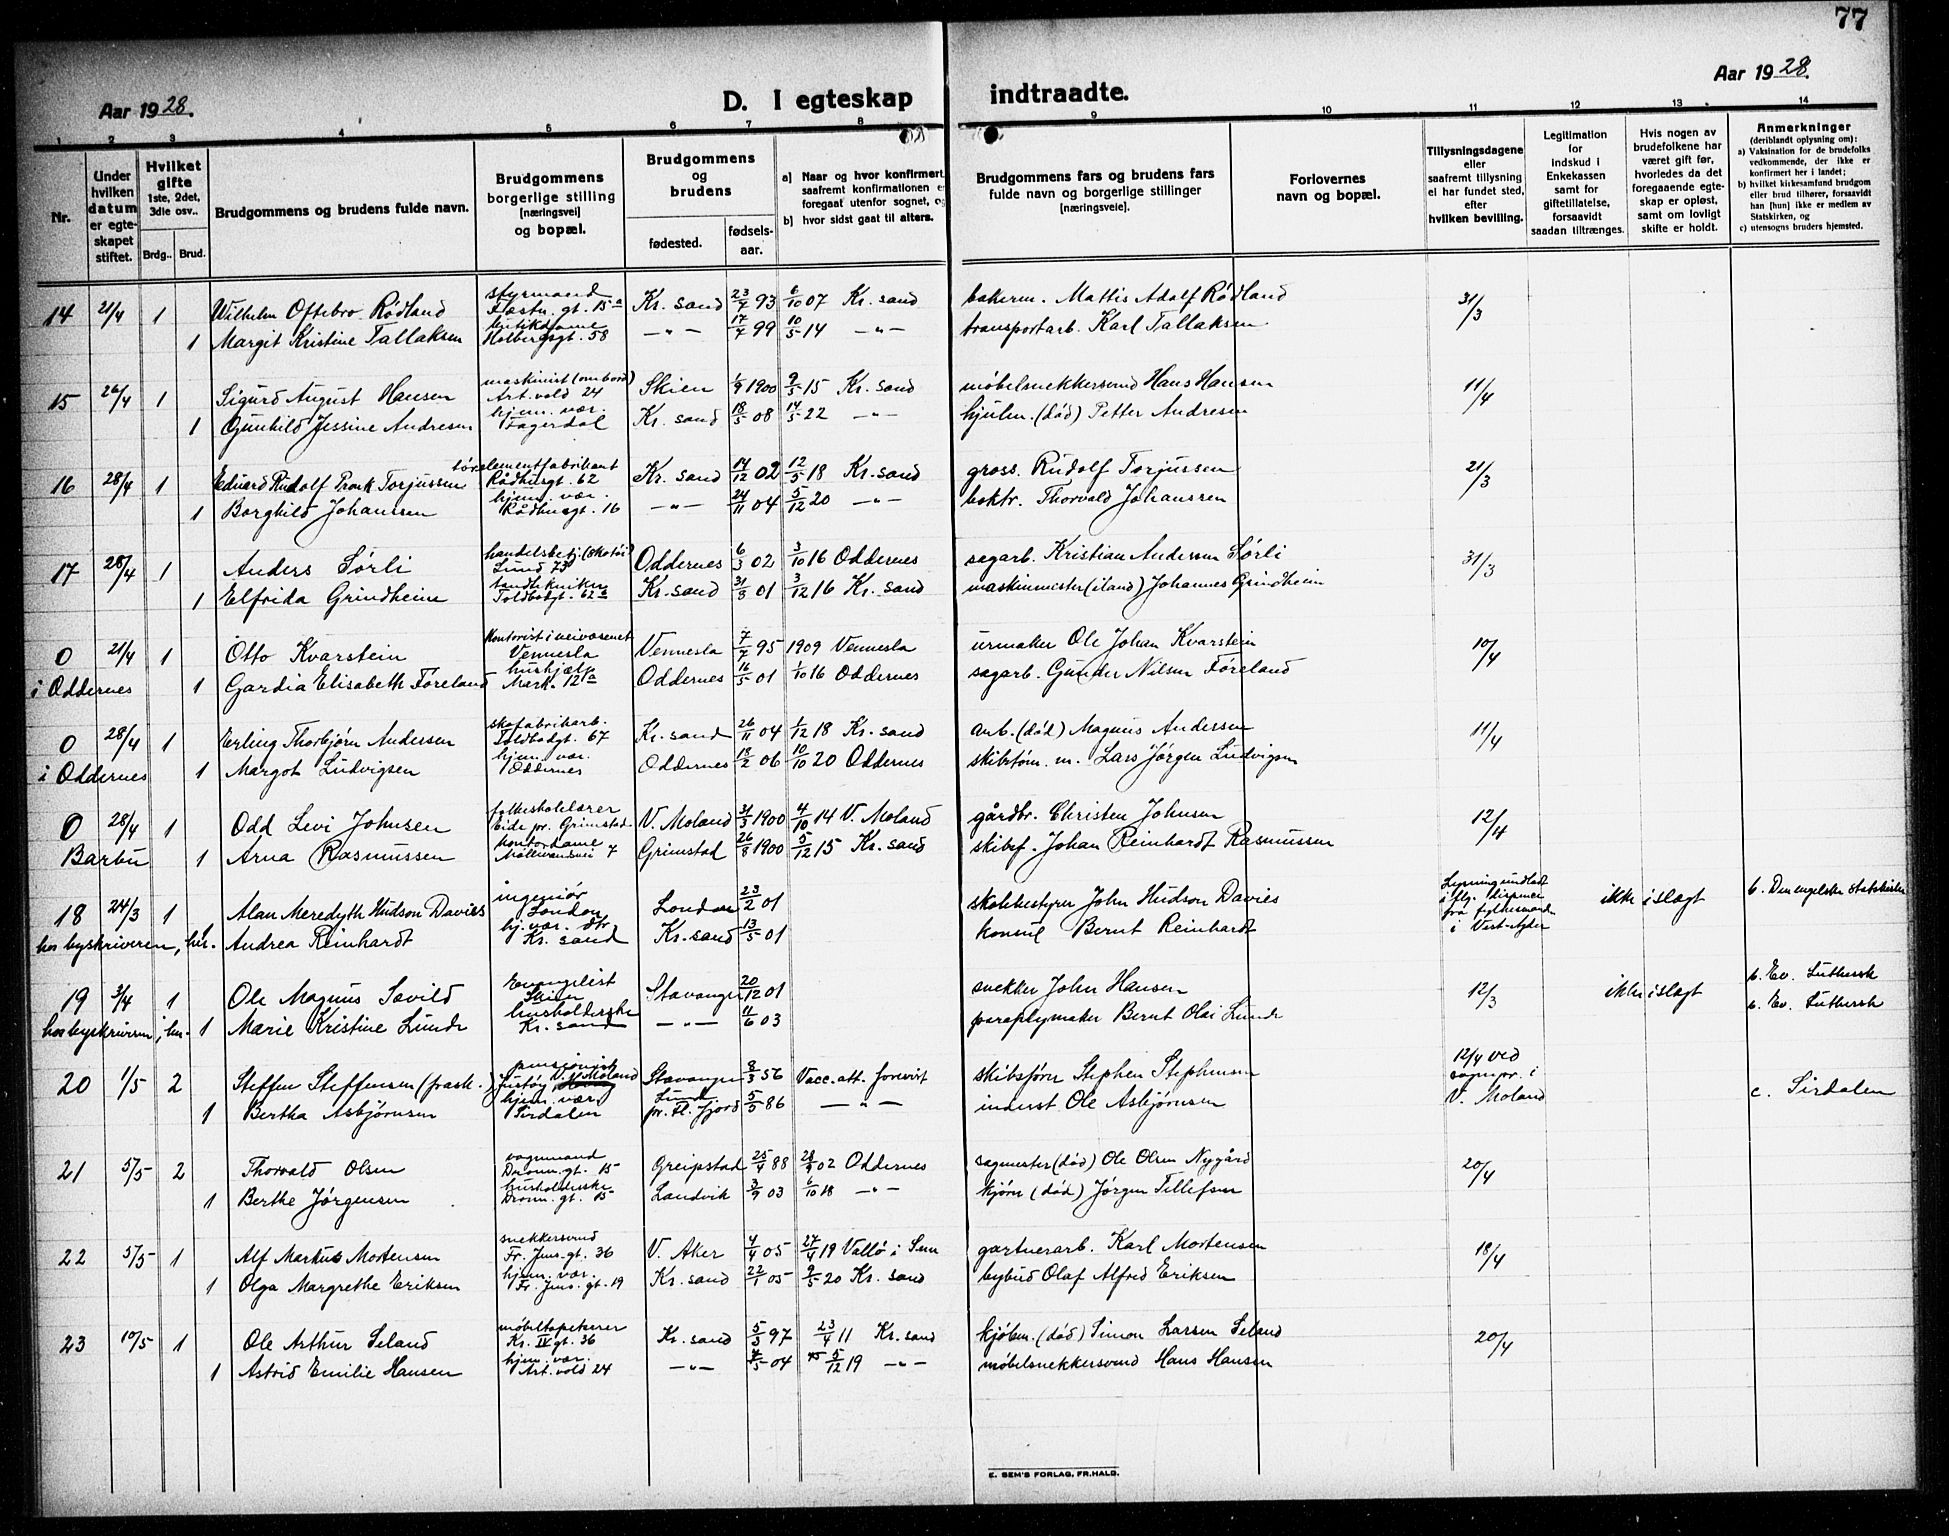 77
Aar 1928.
D. I egteskap
indtraadte.
Aar 1928.
1 2 3 4 5 6 7 8 9 10 11 12 13 14
Nr.
Under hvilken datum er egteskapet stiftet.
Hvilket gifte 1ste, 2det, 3die osv..
Brdg.. Brud.
Brudgommens og brudens fulde navn.
Brudgommens borgerlige stilling [næringsvei] og bopæl.
Brudgommens og brudens
fødested.
fødselsaar.
a) Naar og hvor konfirmert,
saafremt konfirmationen e
foregaat utenfor sognet, og
b) hvor sidst gaat til alters.
Brudgommens fars og brudens fars
fulde navn og borgerlige stillinger
[næringsveie].
Forlovernes
navn og bopæl.
Tillysningsdagene
eller
saafremt tillysning
ei har fundet sted,
efter
hvilken bevilling.
Legitimation
for
indskud i
Enkekassen
samt for
giftetillatelse,
forsaavidt
saadan tiltrænges.
Hvis nogen av
brudefolkene har
været gift før,
hvorledes da det
foregaaende egteskap
er opløst,
samt om lovligt
skifte er holdt.
Anmerkninger
(deriblandt oplysning om):
a) Vaksination for de brudefolks
vedkommende, der ikke er
konfirmert her i landet;
b) hvilket kirkesamfund brudgom
eller brud tilhører, forsaavidt
han [hun] ikke er medlem av
Statskirken, og
c) utensogns bruders hjemsted.
14 21/4 1 Wilhelm Oftebro Rödland styrmand Fæstn. gt. 15a Kr. sand 23/7 93 6/10 07 Kr. sand bakerm. Mattis Adolf Rödland 31/3
1 Margit Kristine Tallaksen butikdame Holbergsgt. 58 —"— 17/7 99 10/5 14 —"— transportarb. Karl Tallaksen
15 26/4 1 Sigurd August Hansen maskinist (ombord) Art. vold 24 Skien 1/9 1900 9/5 15 Kr. sand møbelsnekkersvend Hans Hansen 11/4
1 Gunhild Jessine Andresen hjem. vær. Fagerdal Kr. sand 18/5 08 14/5 22 —"— hjulm. (død) Petter Andresen
16 28/4 1 Edvard Rudolf Tronk Torjussen Rådhusgt. 62 Kr. sand 14/12 02 12/5 18 Kr. sand gross. Rudolf Torjussen 21/3
1 Borghild Johanssen hjem. vær. Rådhusgt. 16 —"— 24/11 04 5/12 20 —"— boktr. Thorvald Johanssen
17 28/4 1 Anders Sørli handelsbetj. (skotøi) Lund 73 Oddernes 6/3 02 3/10 16 Oddernes sagarb. Kristian Andersen Sørli 31/3
1 Elfrida Grindheim tandtekniker Toldbodgt. 62a Kr. sand 31/8 01 3/12 16 Kr. sand maskinmester (iland) Johannes Grindheim
0 21/4 1 Otto Kvarstein Kontorist i veivæsenet Vennesla Vennesla 7/7 95 1909 Vennesla urmaker Ole Johan Kvarstein 10/4
i Oddernes 1 Gardia Elisabeth Føreland hushjælp Mark. 12a Oddernes 16/5 01 1/10 16 Oddernes sagarb. Gunder Nilsen Føreland
0 28/4 1 Erling Thorbjørn Andersen skofabrikarb. Toldbodgt. 67 Kr. sand 26/11 04 1/12 18 Kr. sand arb. (død) Magnus Andersen 11/4
i Oddernes 1 Margot Ludvigsen hjem. vær. Oddernes Oddernes 18/2 06 10/10 20 Oddernes skibstøm. m. Lars Jørgen Ludvigsen
0 28/4 1 Odd Levi Johnsen folkeskolelærer Eide pr. Grimstad V. Moland 31/3 1900 4/10 14 V. Moland gårdbr. Christen Johnsen 12/4
Barbu 1 Arna Rasmussen kontordame Møllevandsvei 7 Grimstad 26/8 1900 5/12 15 Kr. sand skibsf. Johan Reinhardt Rasmussen
18 24/3 1 Alan Meredyth Hudson Davies ingeniör London London 23/2 01 skolebestyrer John Hudson Davies Lysning undlat iflg. dispens. fra fylkesmanden i Vest-Agder ikke i slegt b. Den engelske statskirke
hos byskriveren, her. 1 Andrea Reinhardt hj. vær. dtr. Kr. sand Kr. sand 13/5 01 konsul Bernt Reinhardt
19 3/4 1 Ole Magnus Sævild Evangelist Skien Stavanger 20/12 01 snekker John Hansen 12/3 ikke i slegt b. Ev. Luthersk
hos byskriveren, her. 1 Marie Kristine Lunde husholderske Kr. sand —"— 11/6 03 paraplymaker Bernt Olai Lunde b. Ev. Luthersk
20 1/5 2 Steffen Steffensen (frask.) pensionist Justøy, V. Moland Stavanger 8/3 56 Vacc. att. forevist skibsförer Stephen Stephensen 12/4 ved sognepr. i V. Moland
1 Bertha Asbjørnsen hjem. vær. Sirdalen Lund pr. Fl. fjord 5/5 86 —"— inderst Ole Asbjørnsen c. Sirdalen
21 5/5 2 Thorvald Olsen vognmand Dronn. gt. 15 Greipstad 25/4 88 28/9 02 Oddernes sagmester (død) Ole Olsen Nygård 20/4
1 Berthe Jørgensen husholderske Dronn. gt. 15 Landvik 3/9 03 6/10 18 —"— kjörer (död) Jørgen Tellefsen
22 5/5 1 Alf Markus Mortensen snekkersvend Fr. Jens. gt. 36 V. Aker 4/4 05 27/4 19 Vallö i Sem gartnerarb. Karl Mortensen 18/4
1 Olga Margrethe Eriksen hjem. vær. Fr. Jens. gt. 19 Kr. sand 22/1 05 9/5 20 Kr. sand bybud Olaf Alfred Eriksen
23 10/5 1 Ole Arthur Seland møbeltapetserer Kr. IV gt. 36 Kr. sand 5/3 97 23/4 11 Kr. sand kjøbm. (død) Simon Larsen Seland 20/4
1 Astrid Emilie Hansen hjem. vær. Art. vold 24 —"— 04 5/12 19 —"— møbelsnekkersvend Hans Hansen
E. SEM'S FORLAG, FR.HALD.